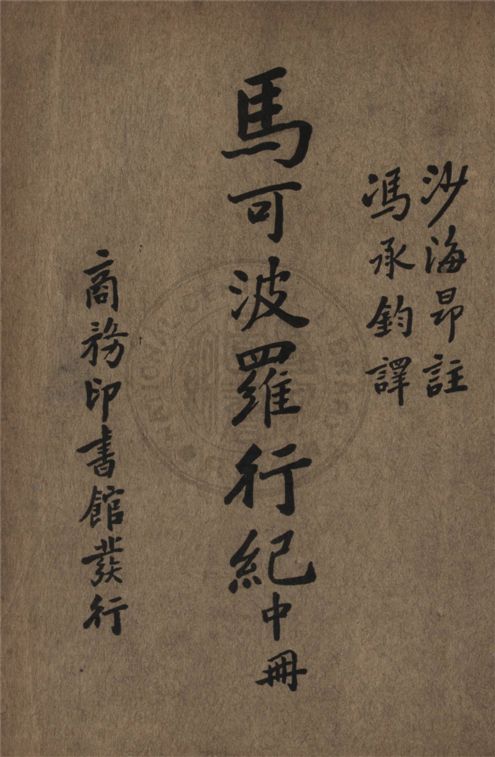 沙海昂註
馮承鈞譯
馬可波羅行紀中冊
商務印書館發行